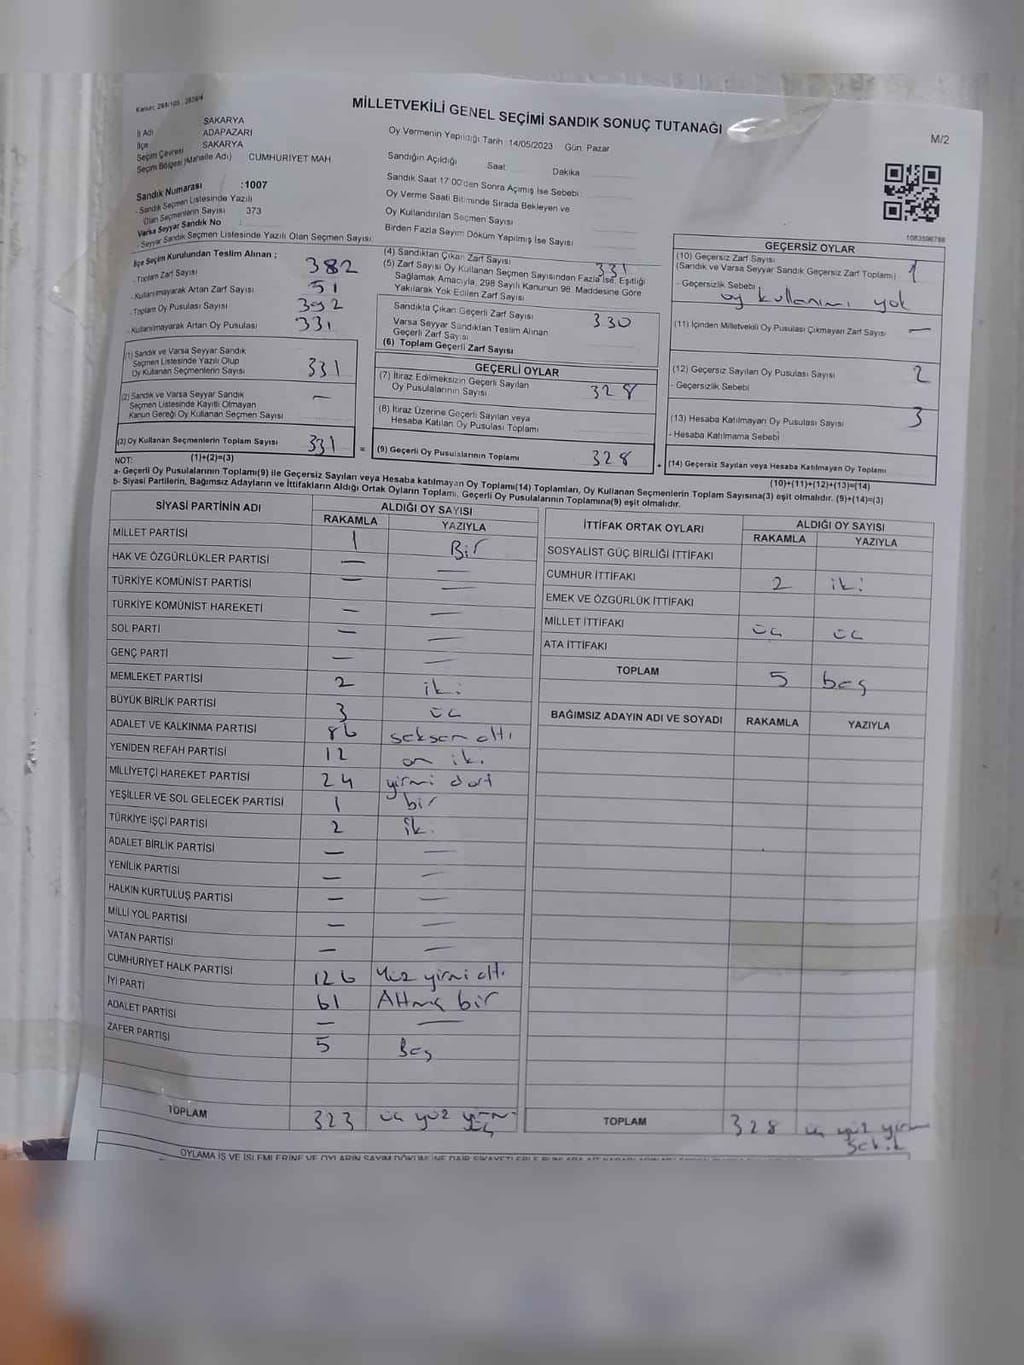 MİLLETVEKİLİ GENEL SEÇİMİ SANDIK SONUÇ TUTANAĞI
M/2
İl Adı SAKARYA
İlçe ADAPAZARI
Seçim Çevresi SAKARYA
Seçim Bölgesi (Mahalle Adı) CUMHURİYET MAH.
Sandık Numarası :1007
- Sandık Seçmen Listesinde Yazılı
Olan Seçmenlerin Sayısı 373
Varsa Seyyar Sandık No
- Seyyar Sandık Seçmen Listesinde Yazılı Olan Seçmen Sayısı:
Oy Vermenin Yapıldığı Tarih :14/05/2023 Gün: Pazar
Sandığın Açıldığı Saat: Dakika
Sandık Saat 17:00'den Sonra Açılmış İse Sebebi
Oy Verme Saati Bitiminde Sırada Bekleyen ve
Oy Kullandırılan Seçmen Sayısı
Birden Fazla Sayım Döküm Yapılmış İse Sayısı
1083596788
İlçe Seçim Kurulundan Teslim Alınan ;
- Toplam Zarf Sayısı 382
- Kullanılmayarak Artan Zarf Sayısı 51
- Toplam Oy Pusulası Sayısı 392
- Kullanılmayarak Artan Oy Pusulası 331
(1) Sandık ve Varsa Seyyar Sandık
Seçmen Listesinde Yazılı Olup
Oy Kullanan Seçmenlerin Sayısı 331
(2) Sandık ve Varsa Seyyar Sandık
Seçmen Listesinde Kayıtlı Olmayan
Kanun Gereği Oy Kullanan Seçmen Sayısı —
(3) Oy Kullanan Seçmenlerin Toplam Sayısı 331
(1)+(2)=(3)
(4) Sandıktan Çıkan Zarf Sayısı 331
(5) Zarf Sayısı Oy Kullanan Seçmen Sayısından Fazla İse, Eşitliği
Sağlamak Amacıyla, 298 Sayılı Kanunun 98. Maddesine Göre
Yakılarak Yok Edilen Zarf Sayısı
Sandıkta Çıkan Geçerli Zarf Sayısı 330
Varsa Seyyar Sandıktan Teslim Alınan
Geçerli Zarf Sayısı
(6) Toplam Geçerli Zarf Sayısı
GEÇERLİ OYLAR
(7) İtiraz Edilmeksizin Geçerli Sayılan
Oy Pusulalarının Sayısı 328
(8) İtiraz Üzerine Geçerli Sayılan veya
Hesaba Katılan Oy Pusulası Toplamı
= (9) Geçerli Oy Pusulalarının Toplamı 328
GEÇERSİZ OYLAR
(10) Geçersiz Zarf Sayısı
(Sandık ve Varsa Seyyar Sandık Geçersiz Zarf Toplamı) 1
- Geçersizlik Sebebi
oy kullanımı yok
(11) İçinden Milletvekili Oy Pusulası Çıkmayan Zarf Sayısı —
(12) Geçersiz Sayılan Oy Pusulası Sayısı 2
- Geçersizlik Sebebi
(13) Hesaba Katılmayan Oy Pusulası Sayısı 3
- Hesaba Katılmama Sebebi
+ (14) Geçersiz Sayılan veya Hesaba Katılmayan Oy Toplamı
(10)+(11)+(12)+(13)=(14)
NOT:
a- Geçerli Oy Pusulalarının Toplamı(9) ile Geçersiz Sayılan veya Hesaba katılmayan Oy Toplamı(14) Toplamları, Oy Kullanan Seçmenlerin Toplam Sayısına(3) eşit olmalıdır. (9)+(14)=(3)
b- Siyasi Partilerin, Bağımsız Adayların ve İttifakların Aldığı Ortak Oyların Toplamı, Geçerli Oy Pusulalarının Toplamına(9) eşit olmalıdır.
SİYASİ PARTİNİN ADI ALDIĞI OY SAYISI
RAKAMLA YAZIYLA
MİLLET PARTİSİ 1 Bir
HAK VE ÖZGÜRLÜKLER PARTİSİ — —
TÜRKİYE KOMÜNİST PARTİSİ — —
TÜRKİYE KOMÜNİST HAREKETİ — —
SOL PARTİ — —
GENÇ PARTİ — —
MEMLEKET PARTİSİ 2 iki
BÜYÜK BİRLİK PARTİSİ 3 üç
ADALET VE KALKINMA PARTİSİ 86 seksen altı
YENİDEN REFAH PARTİSİ 12 on iki
MİLLİYETÇİ HAREKET PARTİSİ 24 yirmi dört
YEŞİLLER VE SOL GELECEK PARTİSİ 1 bir
TÜRKİYE İŞÇİ PARTİSİ 2 iki
ADALET BİRLİK PARTİSİ — —
YENİLİK PARTİSİ — —
HALKIN KURTULUŞ PARTİSİ — —
MİLLİ YOL PARTİSİ — —
VATAN PARTİSİ — —
CUMHURİYET HALK PARTİSİ 126 Yüz yirmi altı
İYİ PARTİ 61 Altmış bir
ADALET PARTİSİ — —
ZAFER PARTİSİ 5 Beş
TOPLAM 323 üç yüz yirmi üç
İTTİFAK ORTAK OYLARI ALDIĞI OY SAYISI
RAKAMLA YAZIYLA
SOSYALİST GÜÇ BİRLİĞİ İTTİFAKI
CUMHUR İTTİFAKI 2 iki
EMEK VE ÖZGÜRLÜK İTTİFAKI
MİLLET İTTİFAKI üç üç
ATA İTTİFAKI
TOPLAM 5 beş
BAĞIMSIZ ADAYIN ADI VE SOYADI RAKAMLA YAZIYLA
TOPLAM 328 üç yüz yirmi
sekiz